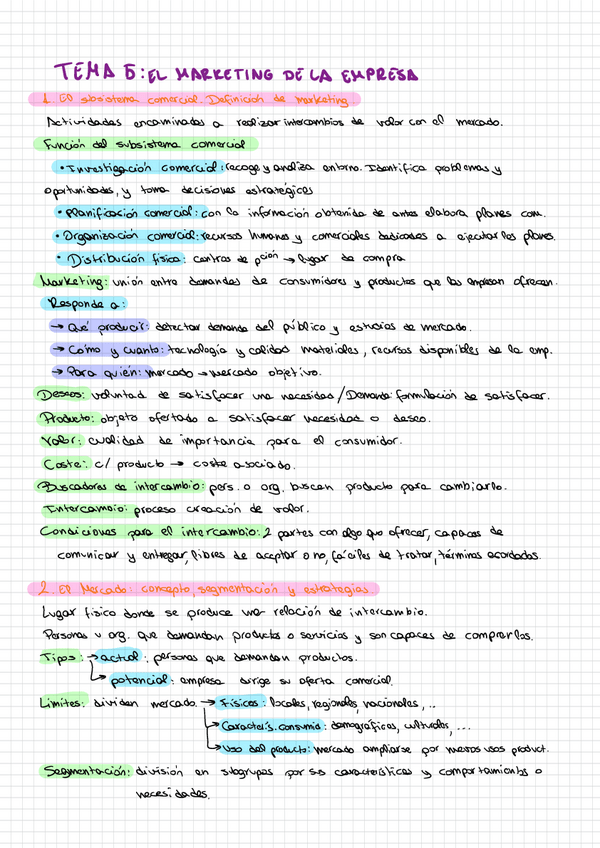 TEMA 5: EL MARKETING DE LA EMPRESA
1. El sbsistema comercial. Definición de marketing.
Actividades encaminadas a realizar intercambios de valor con el mercado.
Función del subsistema comercial
• Investigación comercial: recoge y analiza entorno. Identifica problemas y
oportunidades, y toma decisiones estratégicas
• Planificación comercial: con la información obtenida de antes elabora planes com.
• Organización comercial: recursos humanos y comerciales dedicados a ejecutar los planes.
• Distribución física: centros de pción → lugar de compra
Marketing: unión entre demandas de consumidores y productos que las empresan ofrecen.
Responde a:
→ Qué producir: detectar demanda del público y estudios de mercado.
→ Cómo y cuanto: tecnología y calidad materiales, recursos disponibles de la emp.
→ Para quién: mercado → mercado objetivo.
Deseos: voluntad de satisfacer una necesidad / Demanda: formulación de satisfacer.
Producto: objeto ofertado a satisfacer necesidad o deseo.
Valor: cualidad de importancia para el consumidor.
Coste: c/ producto → coste asociado.
Buscadores de intercambio: pers. o org. buscan producto para cambiarlo.
Intercambio: proceso creación de valor.
Condiciones para el intercambio: 2 partes con algo que ofrecer, capaces de
comunicar y entregar, libres de aceptar o no, fáciles de tratar, términos acordados.
2. El Mercado: concepto, segmentación y estrategias.
Lugar físico donde se produce una relación de intercambio.
Personas u org. que demandan productos o servicios y son capaces de comprarlos.
Tipos: → actual: personas que demandan productos.
→ potencial: empresa dirige su oferta comercial.
Límites: dividen mercado. → Físicos: locales, regionales, nacionales, ...
→ Caracterís. consumid: demográficas, culturales, ...
→ Uso del producto: mercado ampliarse por nuevos usos product.
Segmentación: división en sbgrupos por ss características y comportamientos o
necesidades.